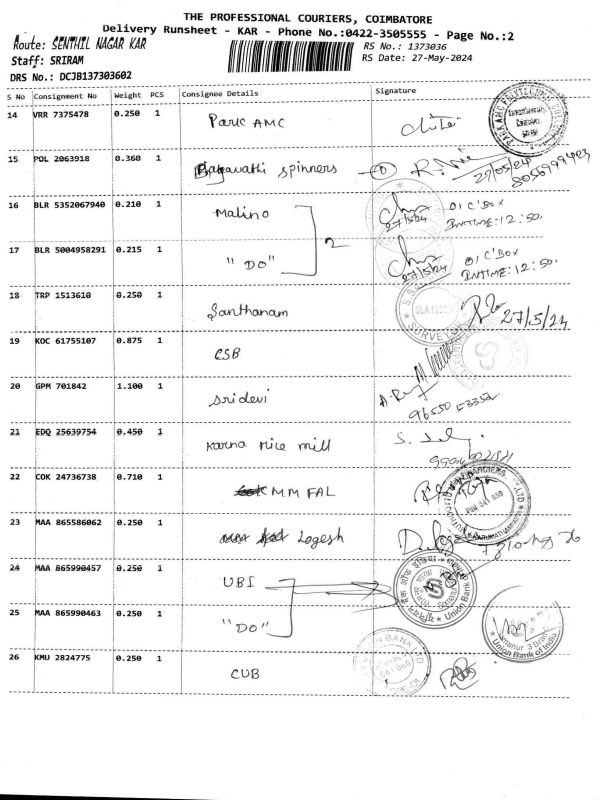 THE PROFESSIONAL COURIERS, COIMBATORE
Delivery Runsheet - KAR - Phone No.:0422-3505555 - Page No.:2
Route: SENTHIL NAGAR KAR
RS No.: 1373036
Staff: SRIRAM
RS Date: 27-May-2024
DRS No.: DCJB137303602
S No Consignment No Weight PCS Consignee Details Signature
14 VRR 7375478 0.250 1 Park AMC
15 POL 2063918 0.360 1 Bagavathi spinners 27/05/24
16 BLR 5352067940 0.210 1 Malino 2 27/5/24 01 C'Box INTIME:12:50.
17 BLR 5004958291 0.215 1 "DO" 27/5/24 01 C'Box INTIME:12:50.
18 TRP 1513610 0.250 1 Santhanam 27/5/24
19 KOC 61755107 0.875 1 CSB
20 GPM 701842 1.100 1 sridevi 96550 53352
21 EDQ 25639754 0.450 1 Karna rice mill
22 COK 24736738 0.710 1 MM FAL
23 MAA 865586062 0.250 1 Logesh
24 MAA 865990457 0.250 1 UBI Union Bank
25 MAA 865990463 0.250 1 "DO" Union Bank of India
26 KMU 2824775 0.250 1 CUB